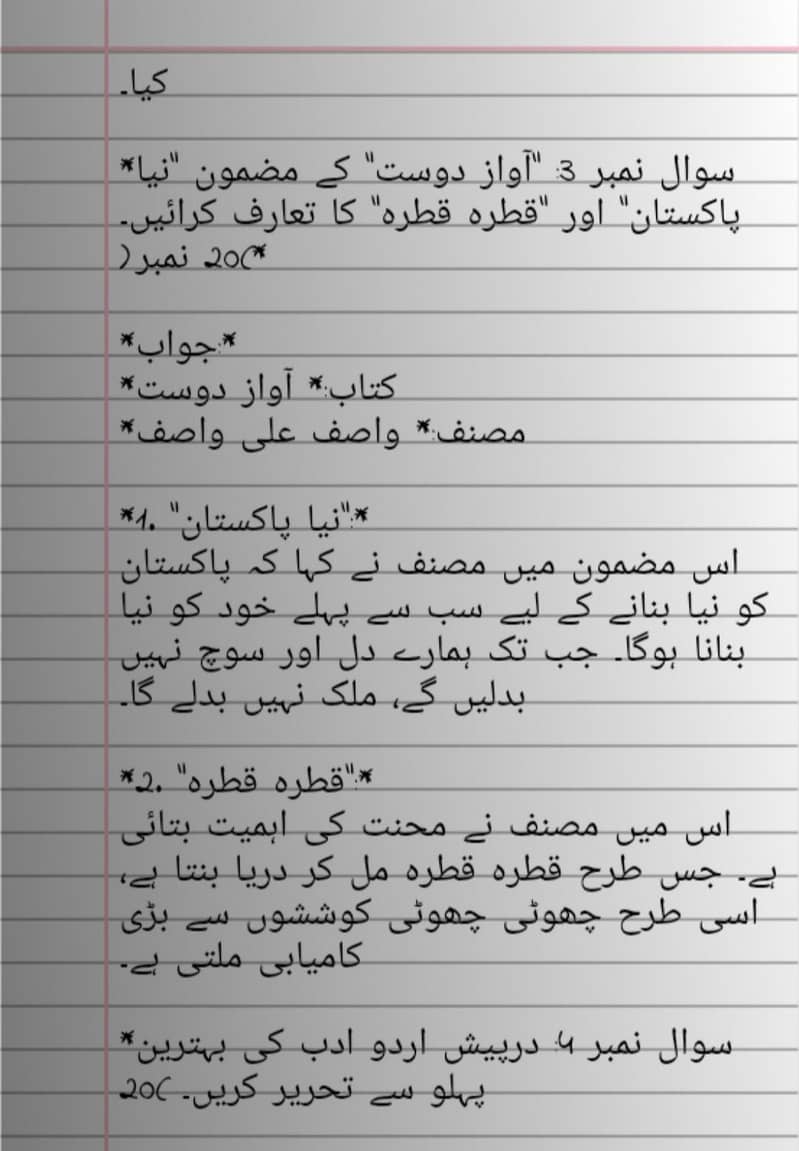 کیا۔
*سوال نمبر 3: "آواز دوست" کے مضمون "نیا
پاکستان" اور "قطرہ قطرہ" کا تعارف کرائیں۔
(20 نمبر)*
*جواب:*
*کتاب:* آواز دوست
*مصنف:* واصف علی واصف
*1. "نیا پاکستان":*
اس مضمون میں مصنف نے کہا کہ پاکستان
کو نیا بنانے کے لیے سب سے پہلے خود کو نیا
بنانا ہوگا۔ جب تک ہمارے دل اور سوچ نہیں
بدلیں گے، ملک نہیں بدلے گا۔
*2. "قطرہ قطرہ":*
اس میں مصنف نے محنت کی اہمیت بتائی
ہے۔ جس طرح قطرہ قطرہ مل کر دریا بنتا ہے،
اسی طرح چھوٹی چھوٹی کوششوں سے بڑی
کامیابی ملتی ہے۔
*سوال نمبر 4: درپیش اردو ادب کی بہترین
پہلو سے تحریر کریں۔ (20